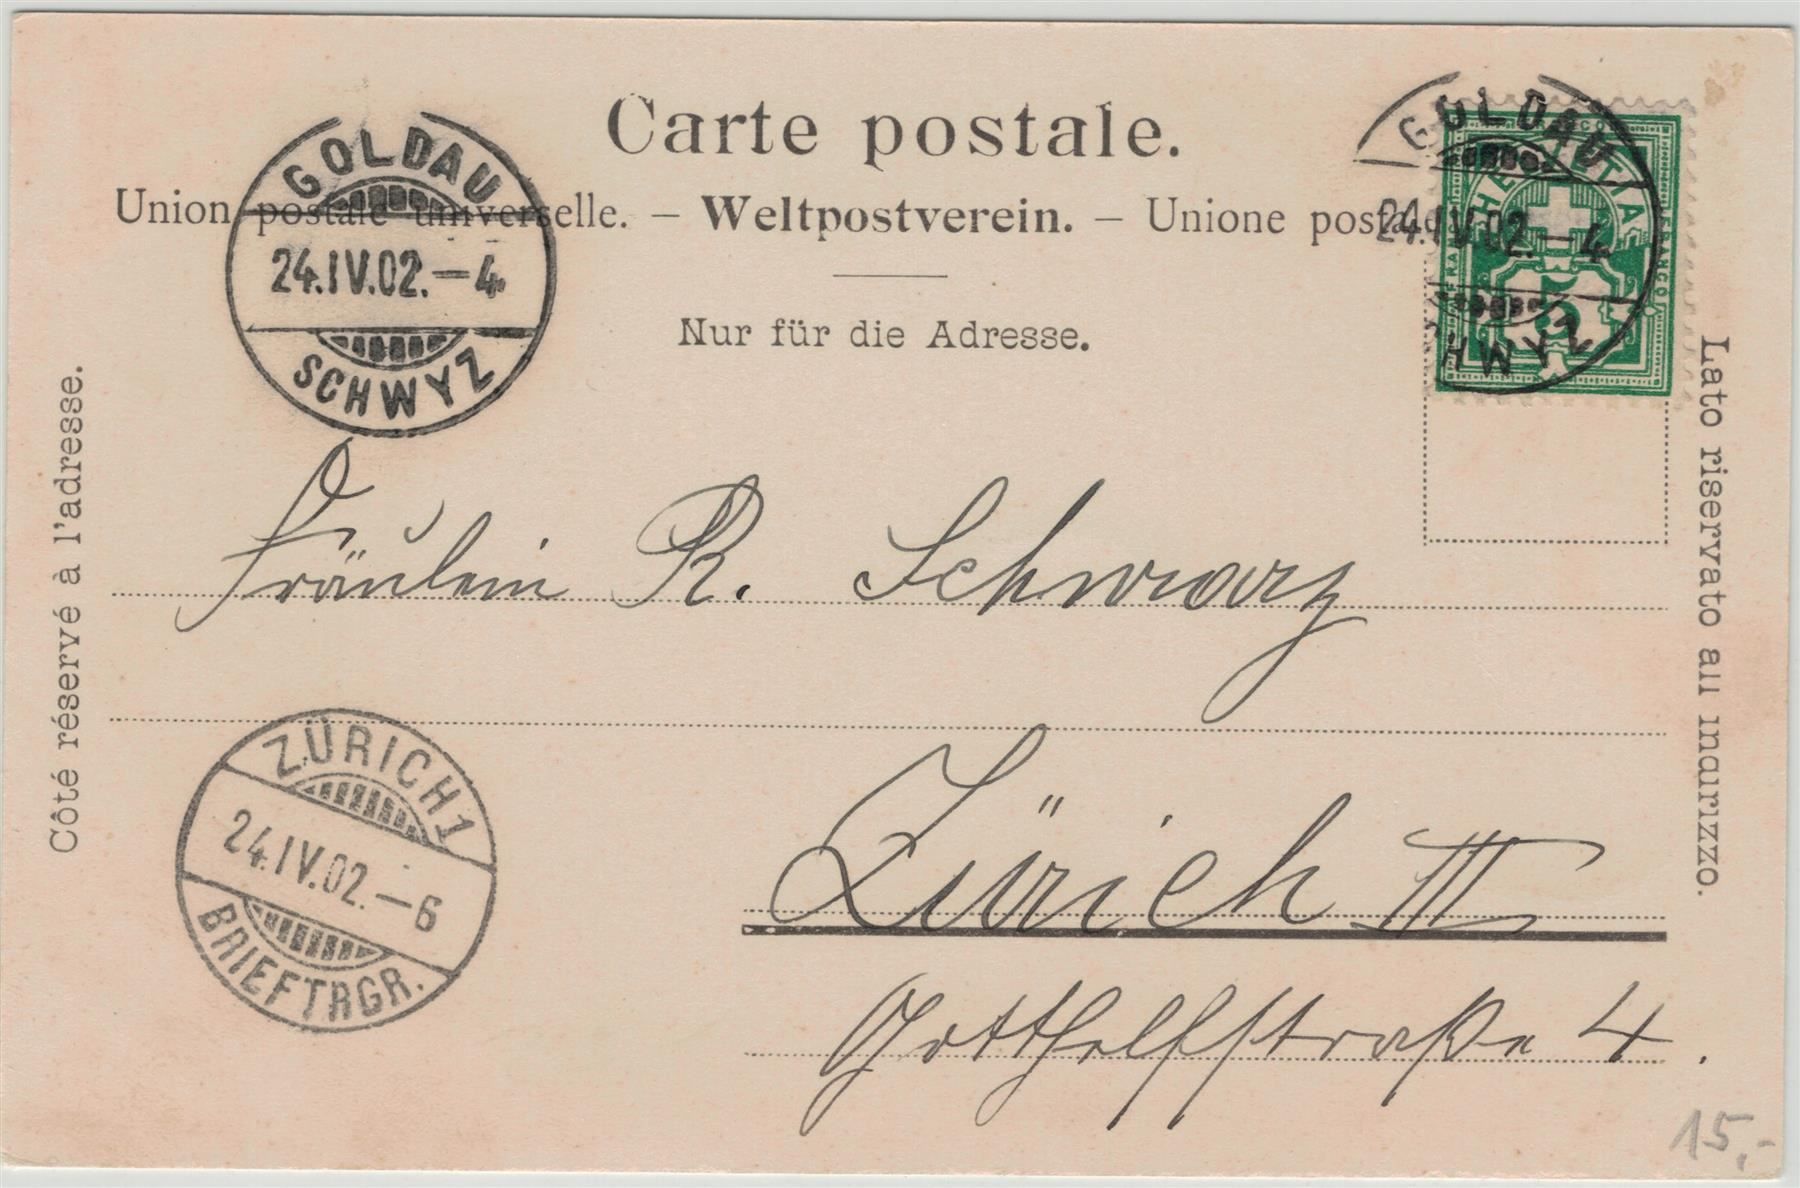 Carte postale.
Union postale universelle. – Weltpostverein. – Unione postale
Nur für die Adresse.
Côté réservé à l'adresse.
Lato riservato all indirizzo.
GOLDAU
24.IV.02.–4
SCHWYZ
GOLDAU
24.IV.02.–4
SCHWYZ
HELVETIA
FRANCO
5
Fräulein R. Schwarz
Zürich III
Gotthelfstraße 4.
ZÜRICH 1
24.IV.02.–6
BRIEFTRGR.
15,-